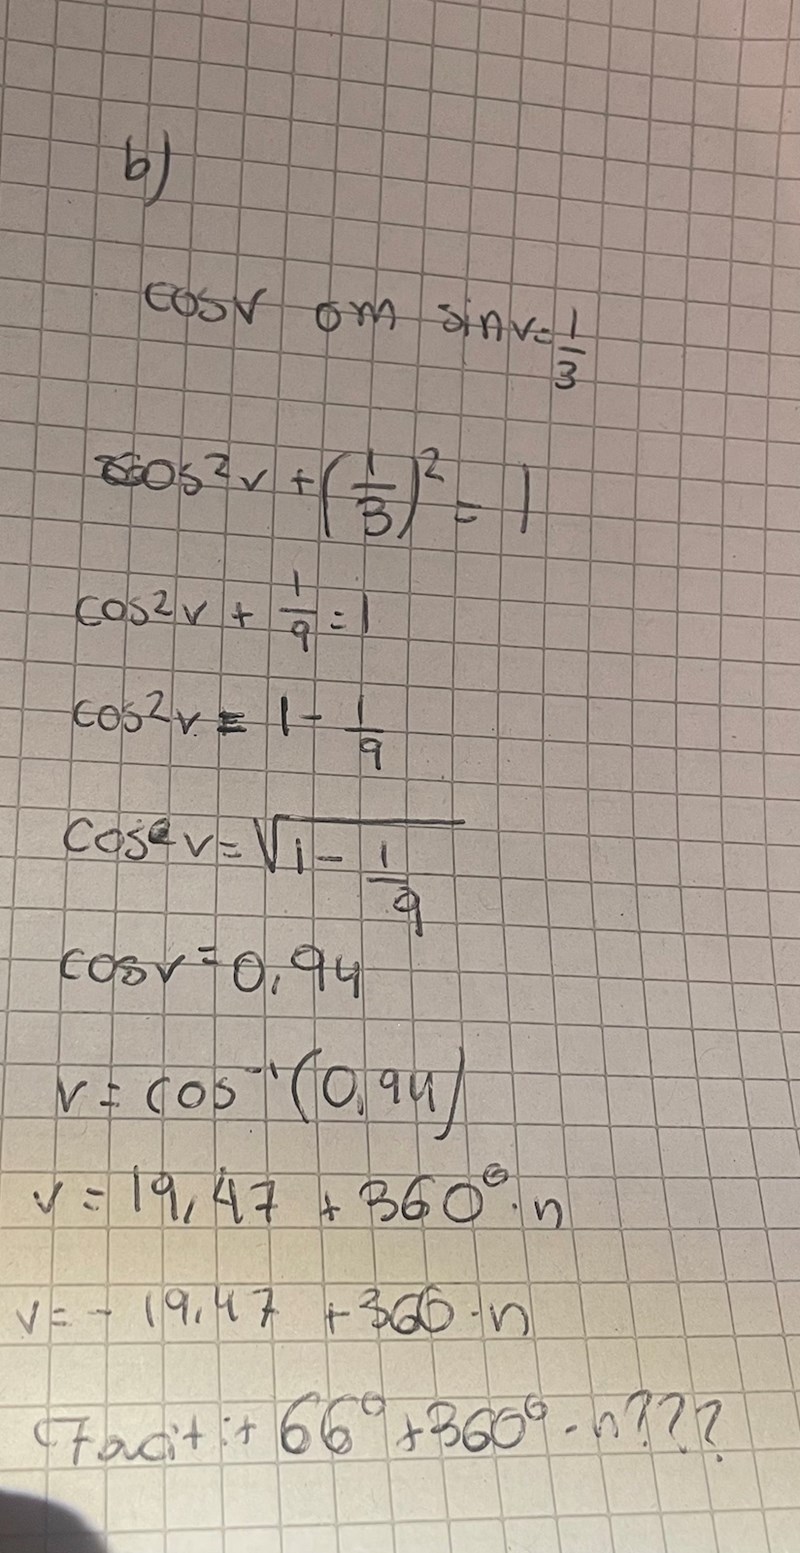 b)
cosv om sinv=1/3
cos²v + (1/3)² = 1
cos²v + 1/9 = 1
cos²v = 1 - 1/9
cos v = √1 - 1/9
cosv = 0,94
v = cos⁻¹(0,94)
v = 19,47 + 360° · n
v = - 19,47 + 360 · n
Facit: + 66° + 360° · n???